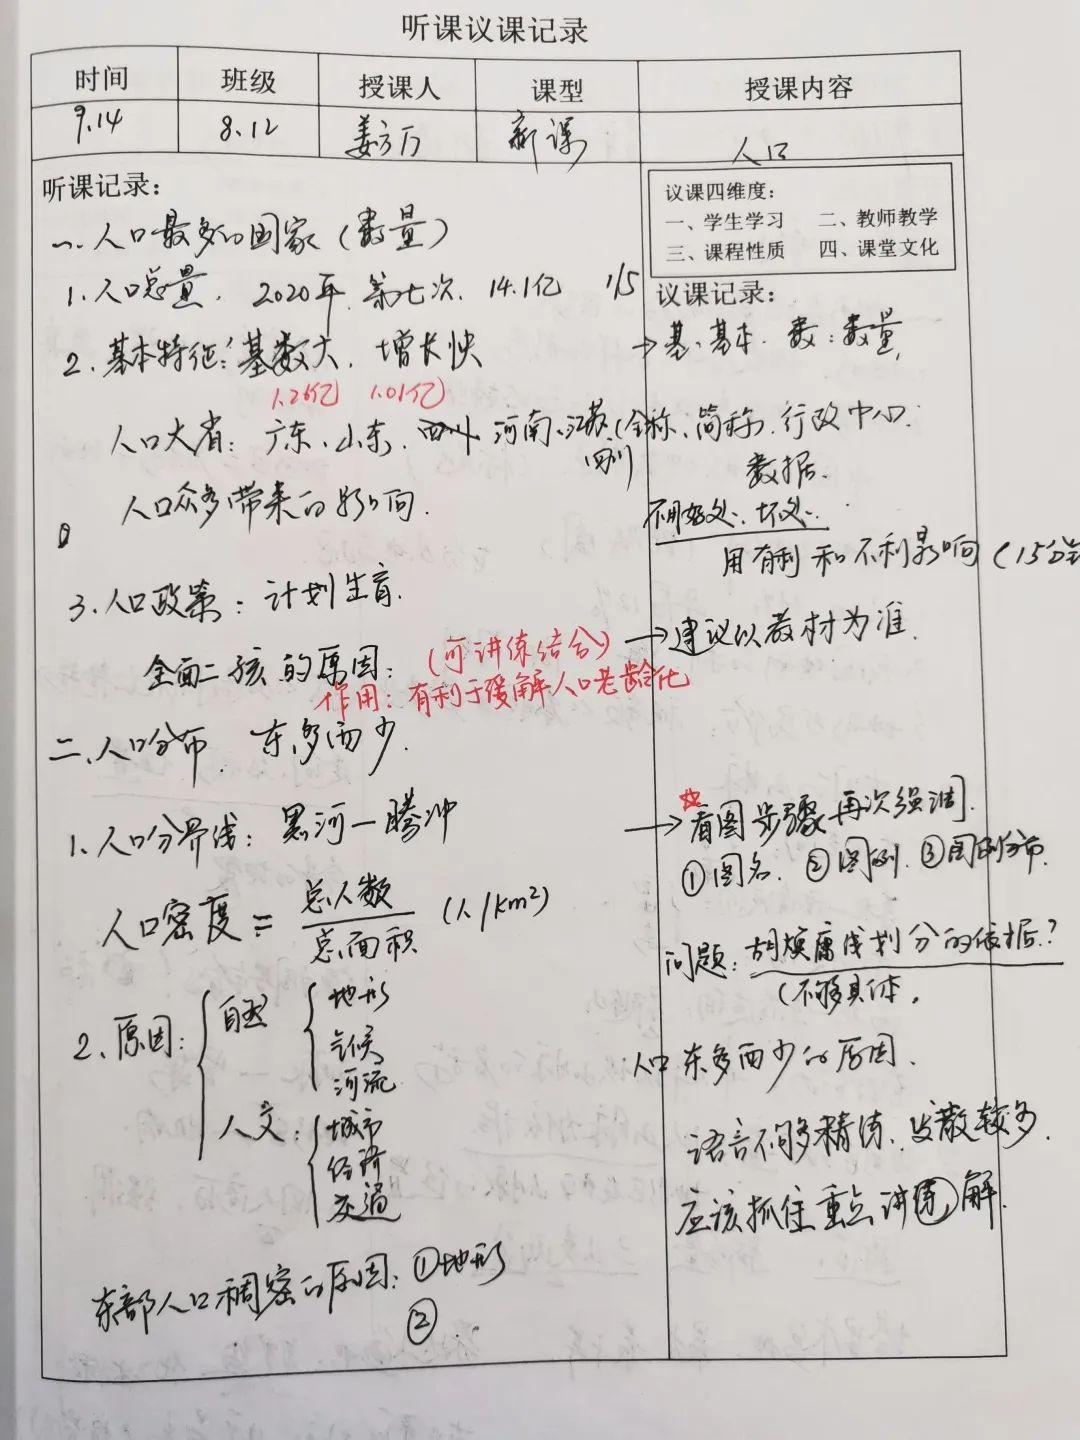 听课议课记录
时间 班级 授课人 课型 授课内容
9.14 8.12 姜方万 新课 人口
听课记录：
一、人口最多的国家（数量）
1.人口总量. 2020年.第七次. 14.1亿 1/5
2.基本特征：基数大. 增长快
1.26亿 1.01亿
人口大省：广东、山东、河南、江苏、
四川
人口众多带来的影响.
3.人口政策：计划生育.
全面二孩的原因：（可讲练结合）
作用：有利于缓解人口老龄化
二、人口分布 东多西少.
1.人口分界线：黑河—腾冲
人口密度 = 总人数/总面积 (人/km²)
2、原因：
自然
地形
气候
河流
人文：
城市
经济
交通
东部人口稠密的原因：①地形
②
议课四维度：
一、学生学习 二、教师教学
三、课程性质 四、课堂文化
议课记录：
→基：基本. 数：数量.
(全称、简称、行政中心.
数据.
不用好处、坏处.
用有利和不利影响 (15分钟
→建议以教材为准.
→☆看图步骤再次强调.
①图名. ②图例. ③图例分布.
问题：胡焕庸线划分的依据？
(不够具体.
人口东多西少的原因.
语言不够精练、发散较多.
应该抓住重点讲解.